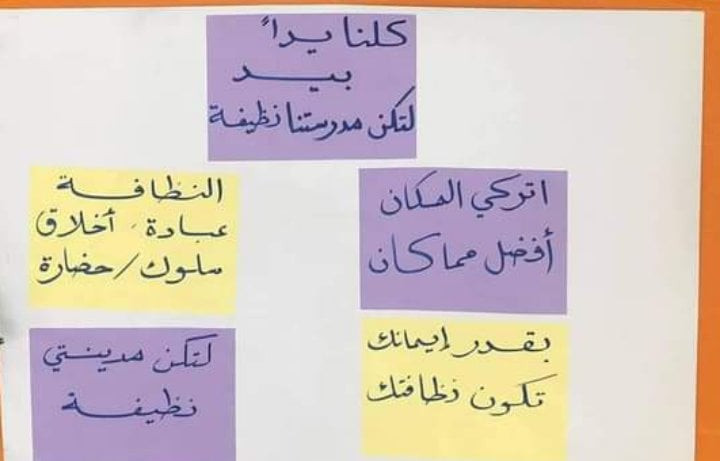 كلنا يداً
بيد
لتكن مدرستنا نظيفة
اتركي المكان
أفضل مما كان
النظافة
عبادة، أخلاق
سلوك/حضارة
بقدر إيمانك
تكون نظافتك
لتكن مدينتي
نظيفة